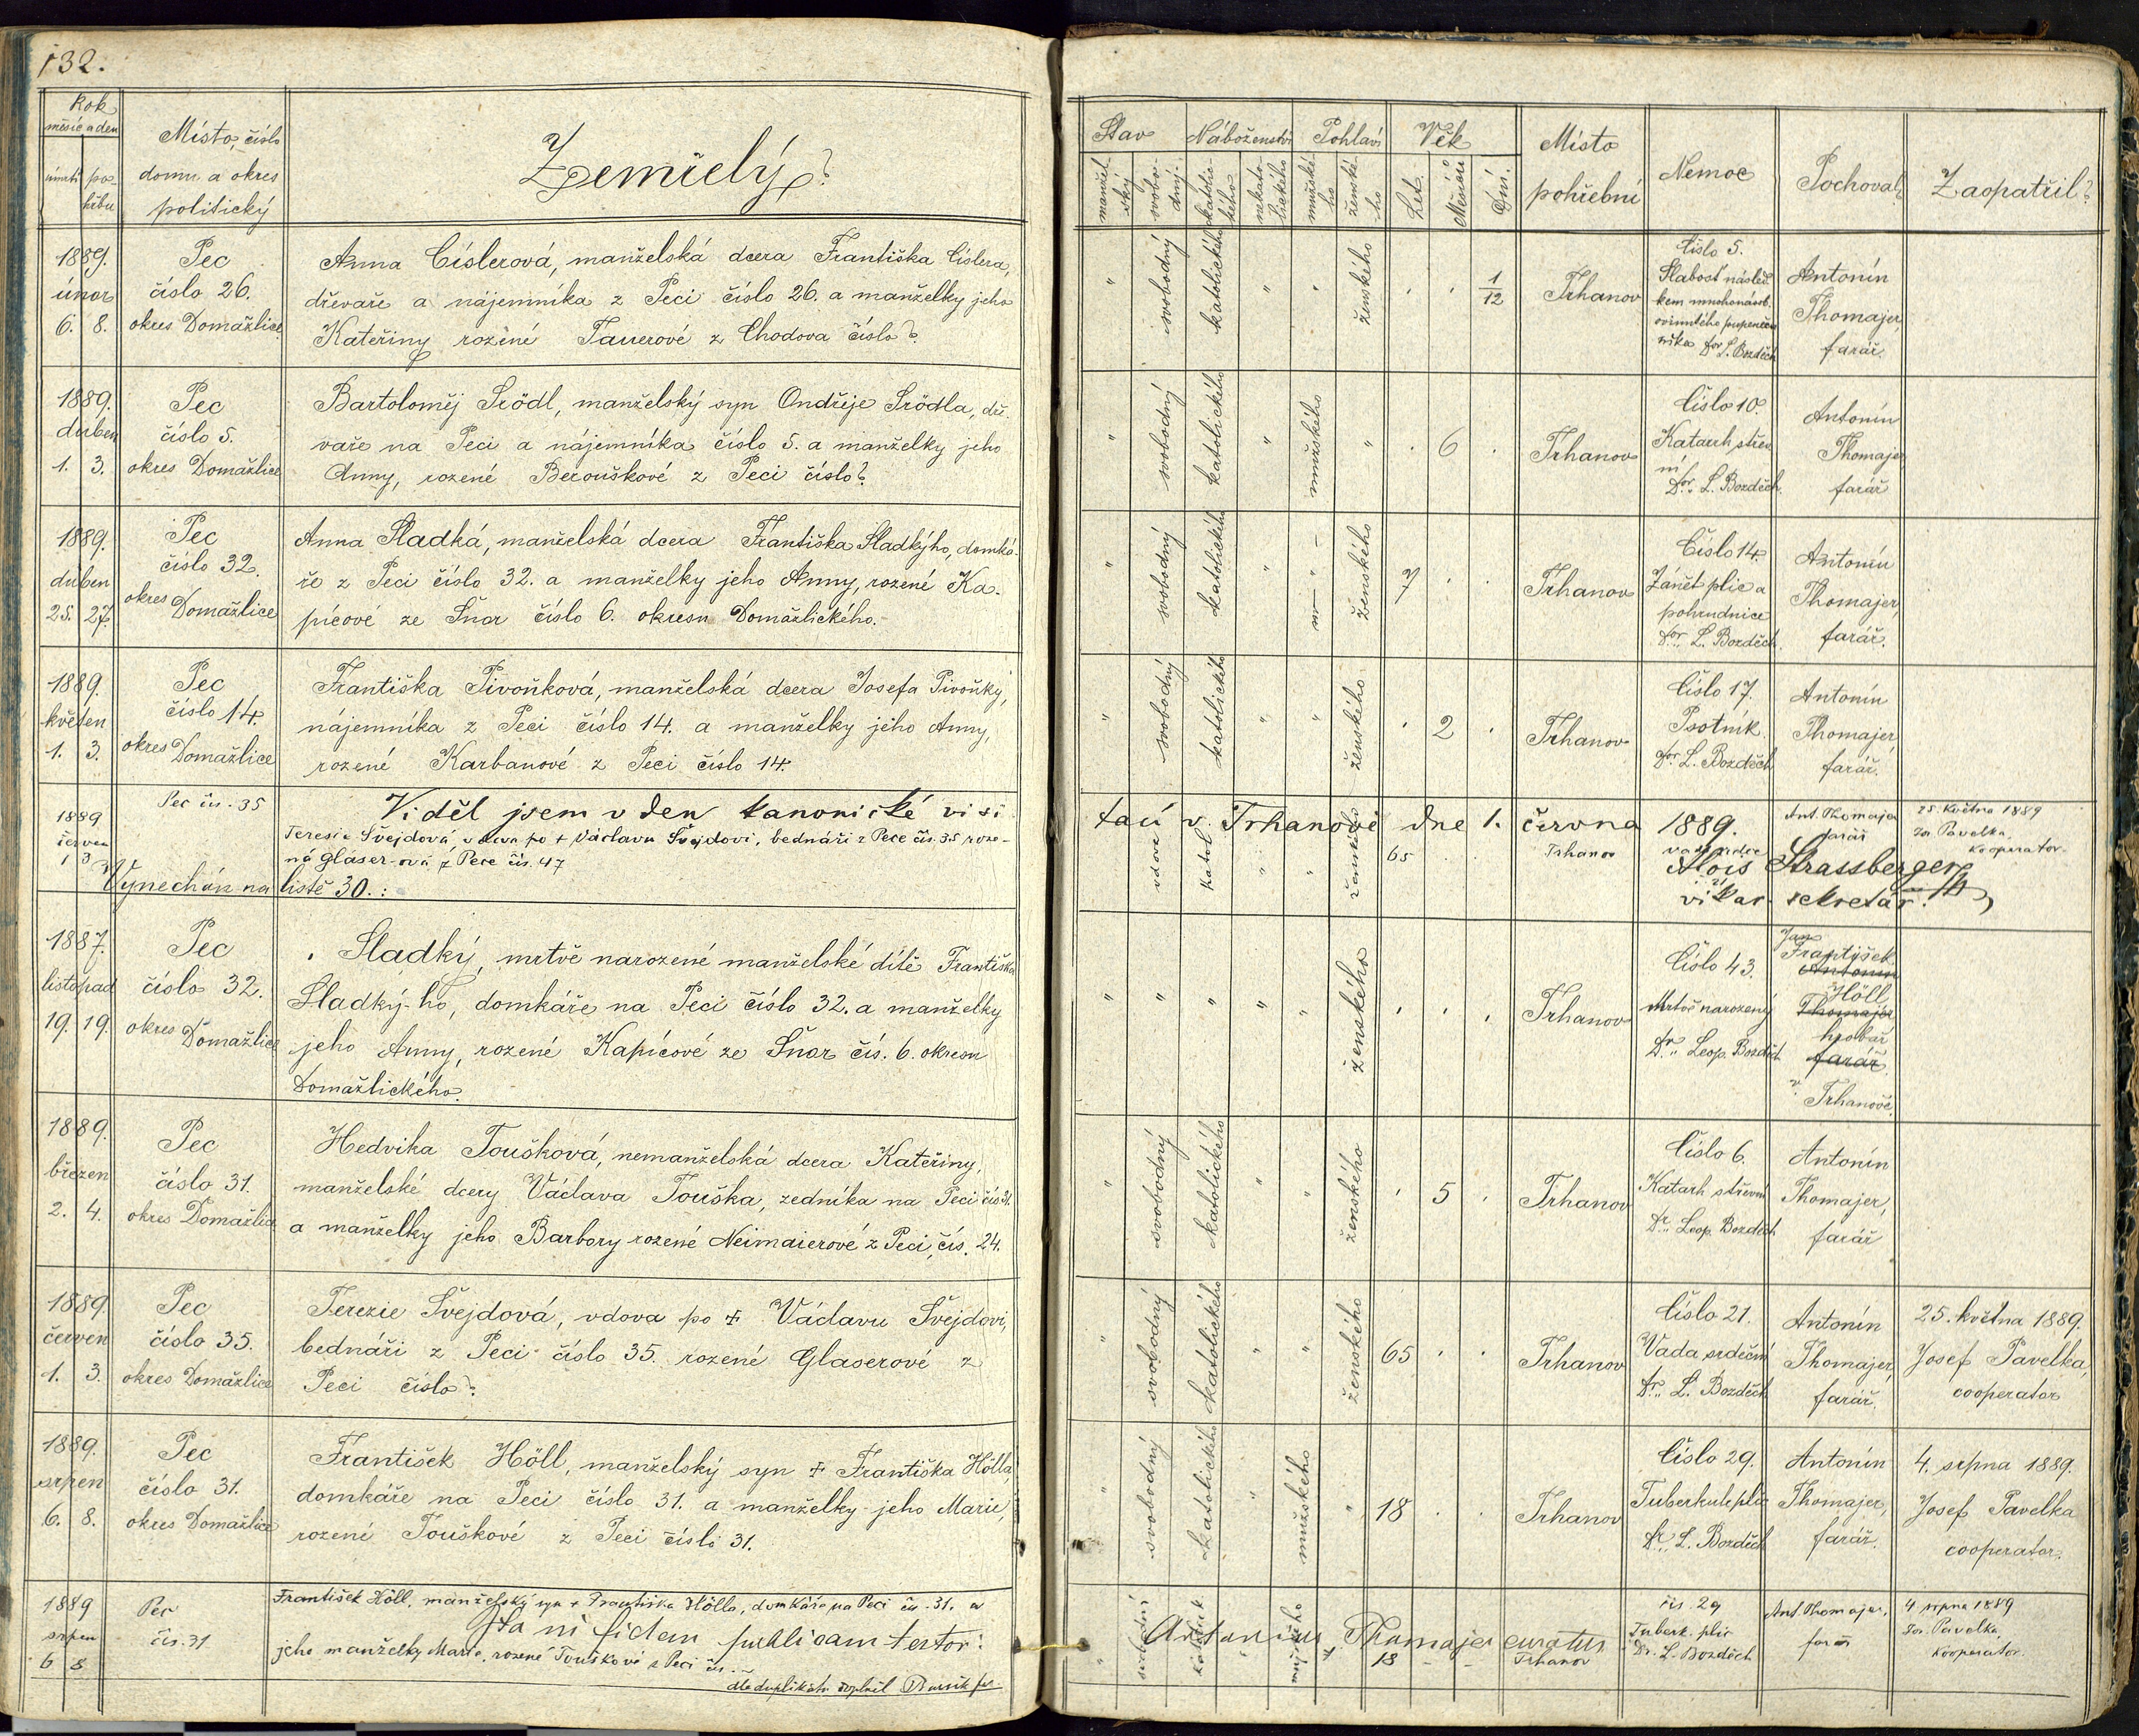 132.
Rok
měsíc a den
úmrtí po-
hřbu
Místo, číslo
domu a okres
politický
Zemřelý?
Stav
manžel-
ský
svobo-
dný
Náboženství
katolic-
kého
nekato-
lického
Pohlaví
mužské-
ho
ženské-
ho
Věk
Let
Měsíců
Dní.
Místo
pohřební
Nemoc
Pochoval?
Zaopatřil?
1889.
únor
6. 8.
Pec
číslo 26.
okres Domažlice
Anna Císlerová, manželská dcera Františka Císlera,
dřevaře a nájemníka z Peci číslo 26. a manželky jeho
Kateřiny rozené Tauerové z Chodova číslo?
" svobodný katolického " " ženského . . 1/12
Trhanov
Číslo 5.
Slabosť násled-
kem mnohonásob.
ovinutého pupeční-
níka Dor L. Bozděch
Antonín
Thomajer,
farář.
1889.
duben
1. 3.
Pec
číslo 5.
okres Domažlice
Bartoloměj Srödl, manželský syn Ondřeje Srödla, dř-
vaře na Peci a nájemníka číslo 5. a manželky jeho
Anny, rozené Berouškové z Peci číslo?
" svobodný katolického " mužského " . 6 .
Trhanov
Číslo 10.
Katarrh střev-
ní
Dor. L. Bozděch.
Antonín
Thomajer
farář
1889.
duben
25. 27.
Pec
číslo 32.
okres Domažlice
Anna Sladká, manželská dcera Františka Sladkýho, domká-
ře z Peci číslo 32. a manželky jeho Anny, rozené Ka-
pícové ze Šnor číslo 6. okresu Domažlického.
" svobodný katolického " " ženského 7 . .
Trhanov
Číslo 14.
Zánět plic a
pohrudnice
Dor. L. Bozděch.
Antonín
Thomajer,
farář.
1889.
květen
1. 3.
Pec
číslo 14.
okres Domažlice
Františka Pivoňková, manželská dcera Josefa Pivoňky,
nájemníka z Peci číslo 14. a manželky jeho Anny,
rozené Karbanové z Peci číslo 14.
" svobodný katolického " " ženského . 2 .
Trhanov
Číslo 17.
Psotník.
Dor. L. Bozděch
Antonín
Thomajer,
farář.
Viděl jsem v den kanonické visi-
tací v Trhanově dne 1. června 1889.
Alois Strassberger
vikar. sekretář.
1889
červen
1 3
Pec čís. 35
Teresie Švejdová, vdova po + Václavu Švejdovi, bednáři z Pece čís. 35 roze-
ná Gláser-ová z Pece čís. 47
vdova katol. " " ženského 65 . .
Trhanov
vada srdce
Ant. Thomajer
farář
25. května 1889
Jos. Pavelka,
kooperator
Vynechán na listě 30.:
1887.
listopad
19. 19.
Pec
číslo 32.
okres Domažlice
. Sladký, mrtvě narozené manželské dítě Františka
Sladký-ho, domkáře na Peci číslo 32. a manželky
jeho Anny, rozené Kapícové ze Šnor čís. 6. okresu
Domažlického.
" " " " " ženského . . .
Trhanov
Číslo 43.
Mrtvě narozený
Dr. Leop. Bozděch
Jan
František
Antonín
Höll
Thomajer
hrobař
farář
v Trhanově.
1889.
březen
2. 4.
Pec
číslo 31.
okres Domažlice
Hedvika Toušková, nemanželská dcera Kateřiny,
manželské dcery Václava Touška, zedníka na Peci čís 31.
a manželky jeho Barbory rozené Neimaierové z Peci, čís. 24.
" svobodný katolického " " ženského . 5 .
Trhanov
Číslo 6.
Katarh střevní
Dr. Leop. Bozděch
Antonín
Thomajer,
farář
1889.
červen
1. 3.
Pec
číslo 35.
okres Domažlice
Terezie Švejdová, vdova po + Václavu Švejdovi,
bednáři z Peci číslo 35. rozené Glaserové z
Peci číslo?
" svobodný katolického " " ženského 65 . .
Trhanov
Číslo 21.
Vada srdeční
Dr. L. Bozděch
Antonín
Thomajer,
farář.
25. května 1889.
Josef Pavelka,
cooperator
1889.
srpen
6. 8.
Pec
číslo 31.
okres Domažlice
František Höll, manželský syn + Františka Hölla,
domkáře na Peci číslo 31. a manželky jeho Marie,
rozené Touškové z Peci číslo 31.
" svobodný katolického " mužského " 18 . .
Trhanov
Číslo 29.
Tuberkule plic
Dr. L. Bozděch
Antonín
Thomajer,
farář.
4. srpna 1889.
Josef Pavelka
cooperator.
1889
srpen
6 8
Pec
čís. 31
František Höll, manželský syn + Františka Hölla, domkáře na Peci čís. 31. a
jeho manželky Marie, rozené Touškové z Peci čís. –
18
Trhanov
čís. 29
Tuberk. plic
Dr. L. Bozděch
Ant Thomajer,
farář
4 srpna 1889
Jos. Pavelka,
kooperátor.
Ita in fidem publicam testor:
Antonius Thomajer curatus
dle duplikátu doplnil